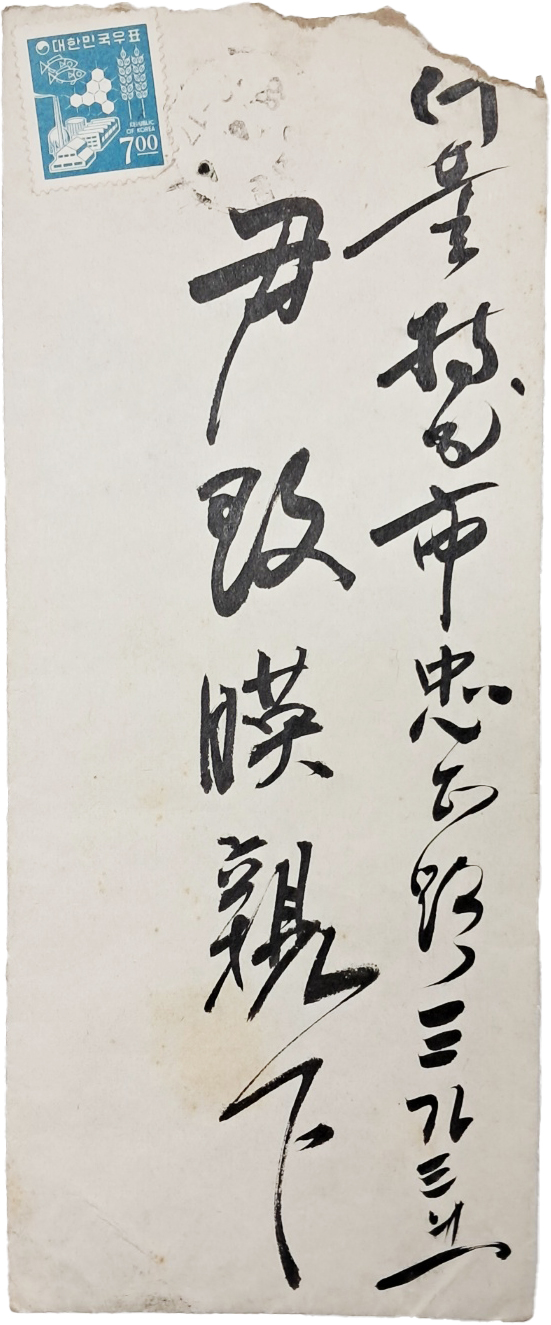 서울特別市忠正路三가三의
尹致暎親下
대한민국우표
REPUBLIC
OF KOREA
7.00